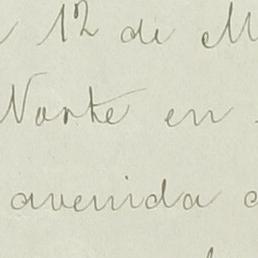 12 de M
Norte en
avenida